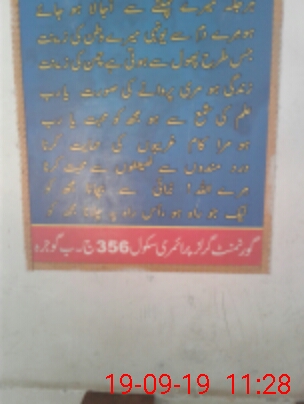 ہر جگہ میرے چمکنے سے اجالا ہو جائے
ہو مرے دم سے یونہی میرے وطن کی زینت
جس طرح پھول سے ہوتی ہے چمن کی زینت
زندگی ہو مری پروانے کی صورت یا رب
علم کی شمع سے ہو مجھ کو محبت یا رب
ہو مرا کام غریبوں کی حمایت کرنا
درد مندوں سے ضعیفوں سے محبت کرنا
مرے اللہ! برائی سے بچانا مجھ کو
نیک جو راہ ہو اس راہ پہ چلانا مجھ کو
گورنمنٹ گرلز پرائمری سکول 356 ج۔ب گوجرہ
19-09-19 11:28